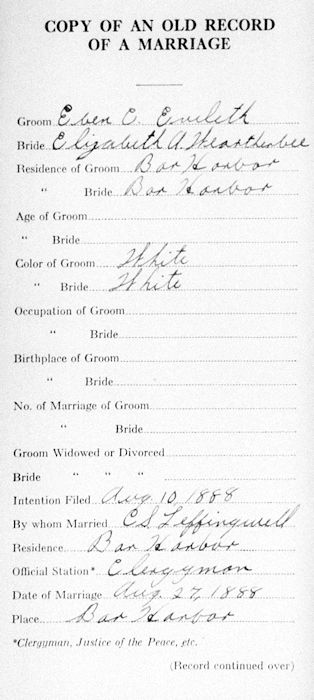 COPY OF AN OLD RECORD
OF A MARRIAGE
Groom Eben E. Eveleth
Bride Elizabeth A. Weartherbee
Residence of Groom Bar Harbor
" Bride Bar Harbor
Age of Groom
" Bride
Color of Groom White
" Bride White
Occupation of Groom
" Bride
Birthplace of Groom
" Bride
No. of Marriage of Groom
" Bride
Groom Widowed or Divorced
Bride " " "
Intention Filed Aug. 10, 1888
By whom Married C.S. Leffingwell
Residence Bar Harbor
Official Station* Clergyman
Date of Marriage Aug. 27, 1888
Place Bar Harbor
*Clergyman, Justice of the Peace, etc.
(Record continued over)